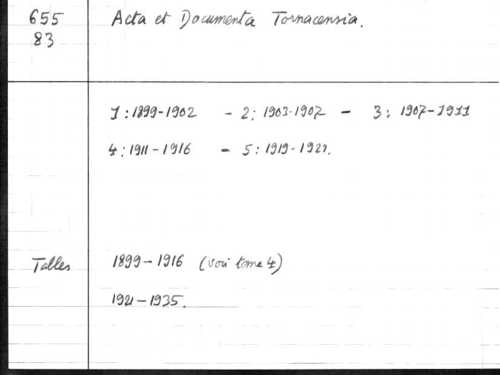 655 Acta et Documenta Tornacensia.
83
1 : 1899-1902 - 2 : 1903-1907 - 3 : 1907-1911
4 : 1911-1916 - 5 : 1919-1921.
Tables 1899-1916 (voir tome 4)
1921-1935.